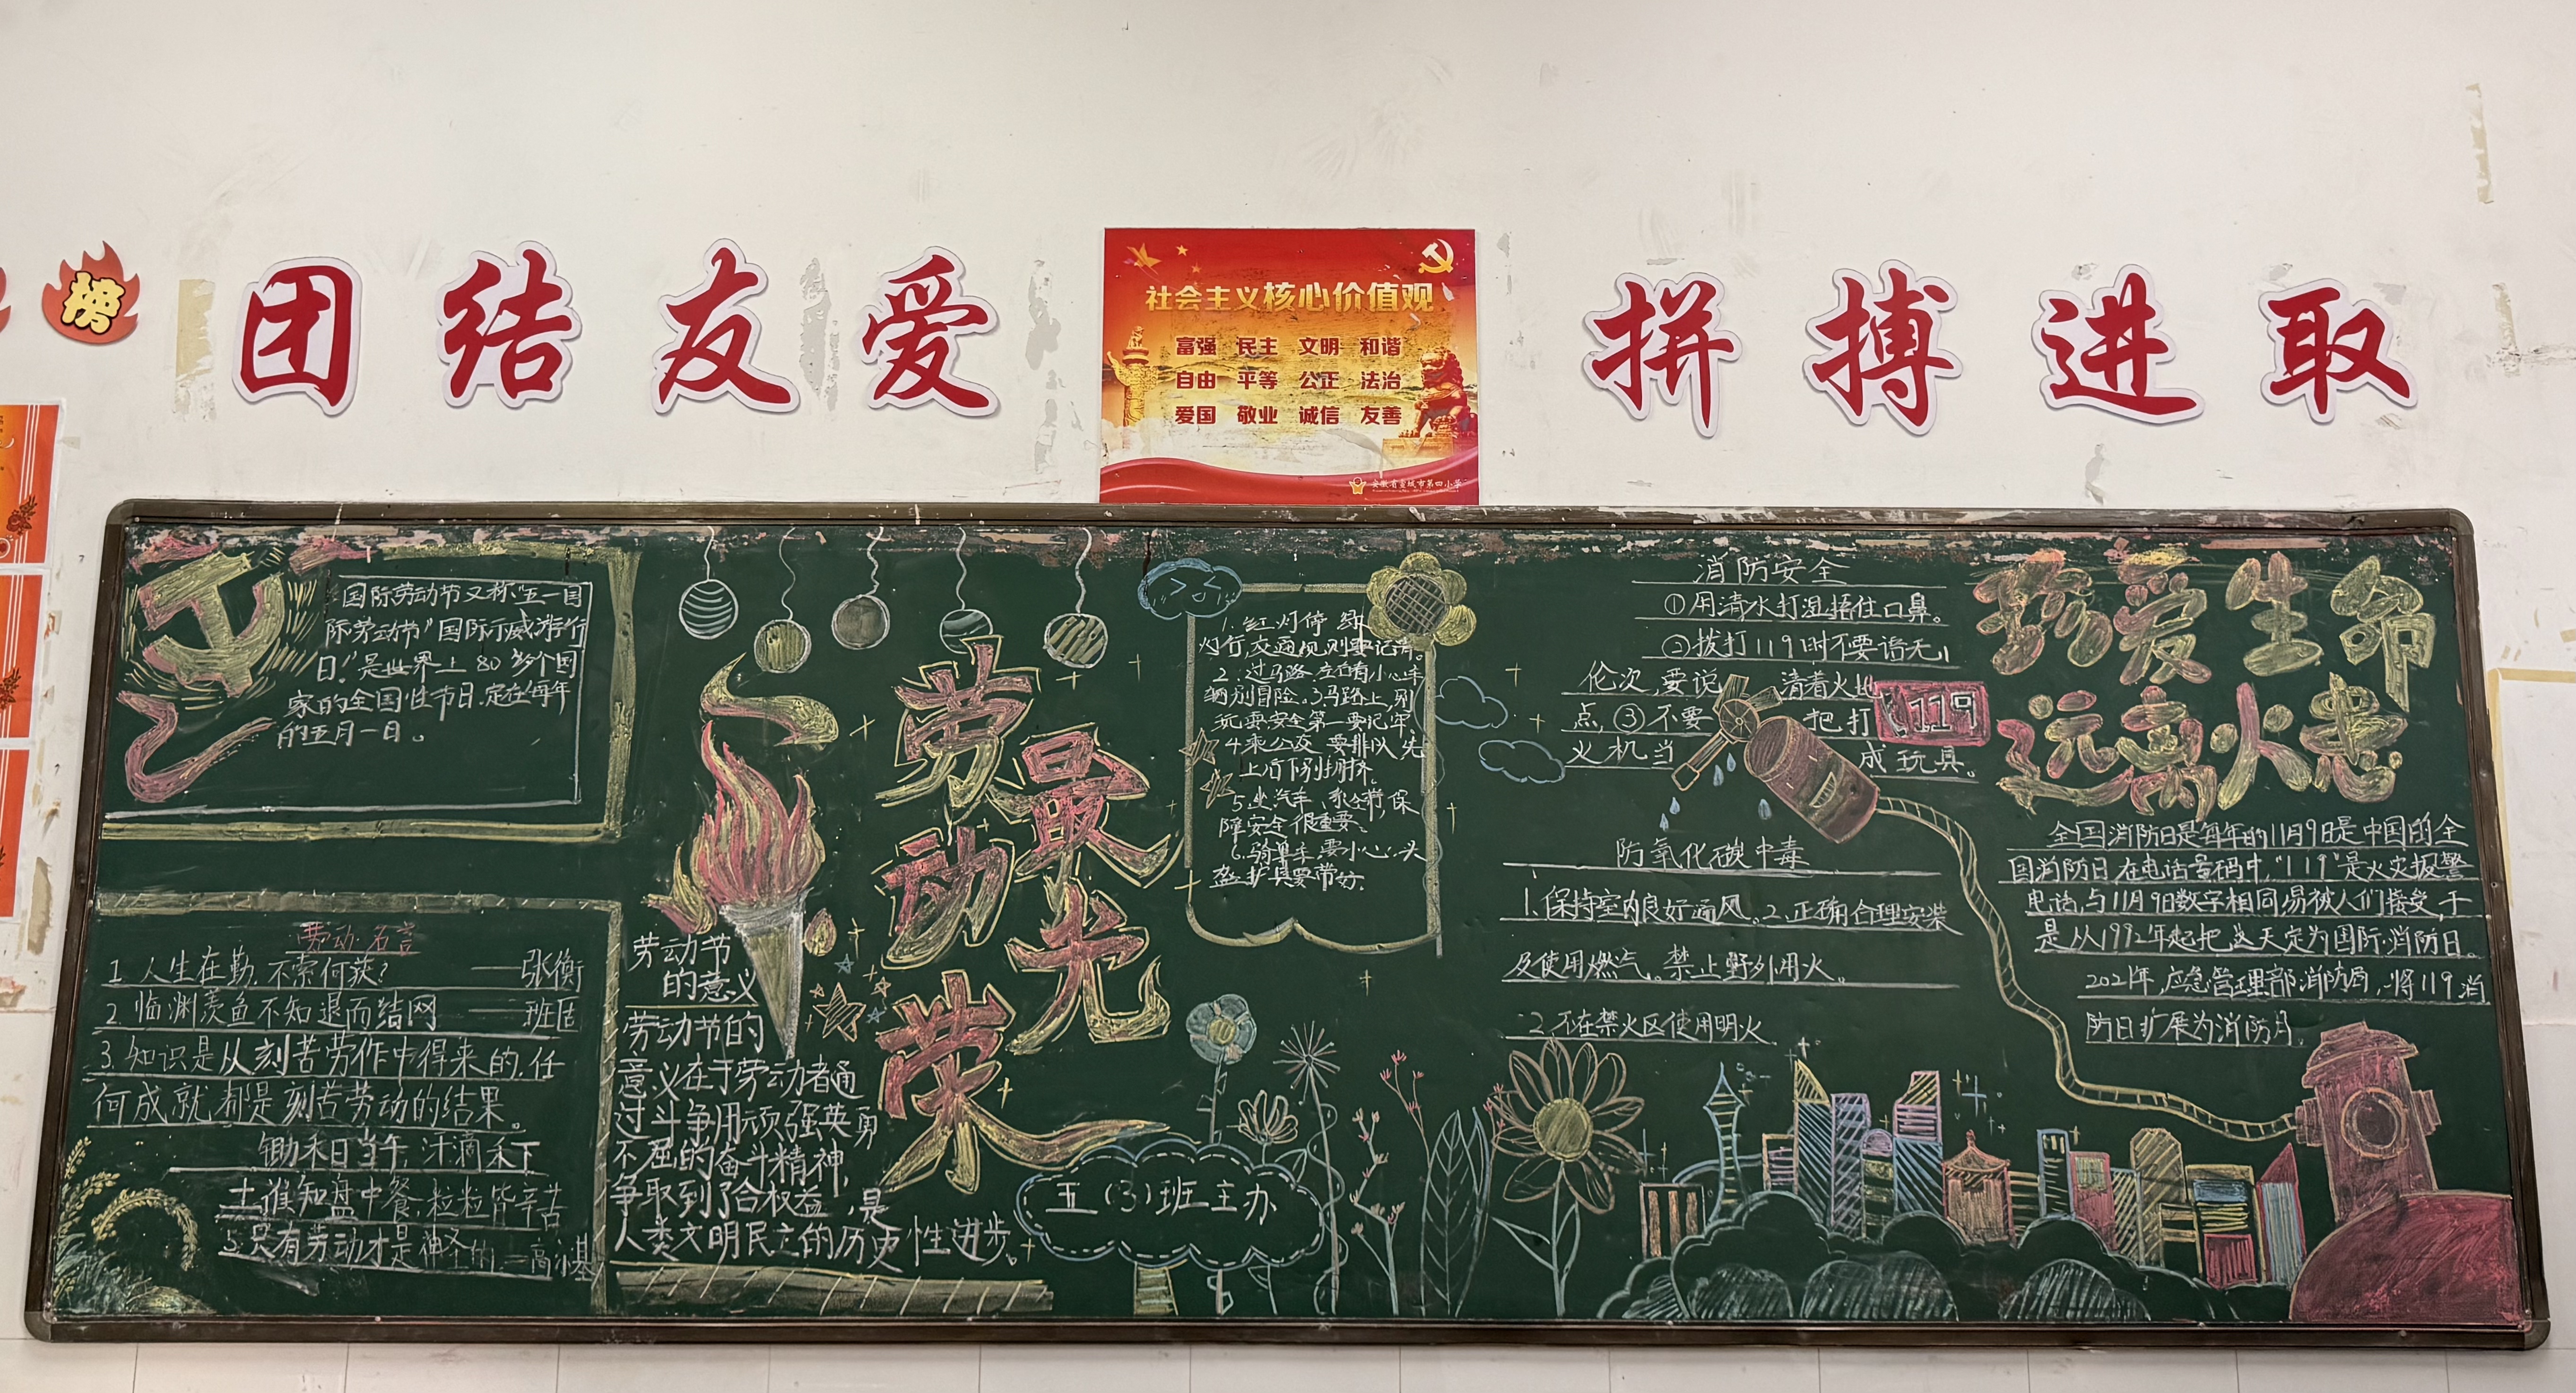 榜
团结友爱
社会主义核心价值观
富强 民主 文明 和谐
自由 平等 公正 法治
爱国 敬业 诚信 友善
安徽省宣城市第四小学
拼搏进取
国际劳动节又称"五一国
际劳动节"国际示威游行
日"是世界上80多个国
家的全国性节日.定在每年
的五月一日。
劳动名言
1.人生在勤,不索何获? ——张衡
2.临渊羡鱼不知退而结网 ——班固
3.知识是从刻苦劳作中得来的,任
何成就都是刻苦劳动的结果。
锄禾日当午,汗滴禾下
土谁知盘中餐,粒粒皆辛苦
5.只有劳动才是神圣的
劳动最光荣
劳动节
的意义
劳动节的
意义在于劳动者通
过斗争用顽强英勇
不屈的奋斗精神,
争取到了合权益,是
人类文明民主的历史性进步。
1.红灯停 绿
灯行,交通规则要记清。
2.过马路,左右看小心车
辆别冒险.3.马路上,别
玩耍安全第一要记牢。
4.乘公交,要排队,先
上后下别拥挤。
5.坐汽车,系全带,保
障安全很重要。
6.骑单车,要小心,头
盔护具要带好.
五(3)班主办
消防安全
①用清水打湿捂住口鼻。
②拨打119时不要语无
伦次,要说清着火地
点,③不要把打
火机当成玩具。
119
防氧化碳中毒
1.保持室内良好通风。2.正确合理安装
及使用燃气。禁止野外用火。
2.不在禁火区使用明火
珍爱生命
远离火患
全国消防日是每年的11月9日是中国的全
国消防日,在电话号码中,"119"是火灾报警
电话,与11月9日数字相同易被人们接受,于
是从1992年起把这天定为国际消防日。
2021年,应急管理部消防局,将119消
防日扩展为消防月。